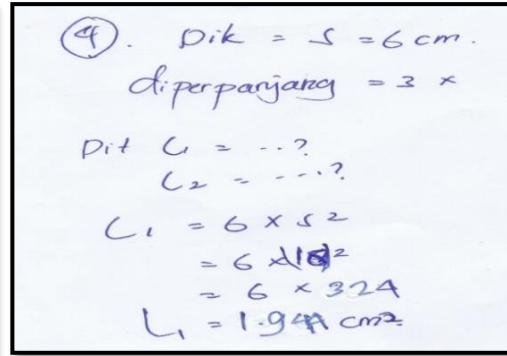 4. Dik = S = 6 cm.
diperpanjang = 3 x
Dit L1 = ..?
L2 = ....?
L1 = 6 x s2
= 6 x 18²
= 6 x 324
L1 = 1.944 cm2